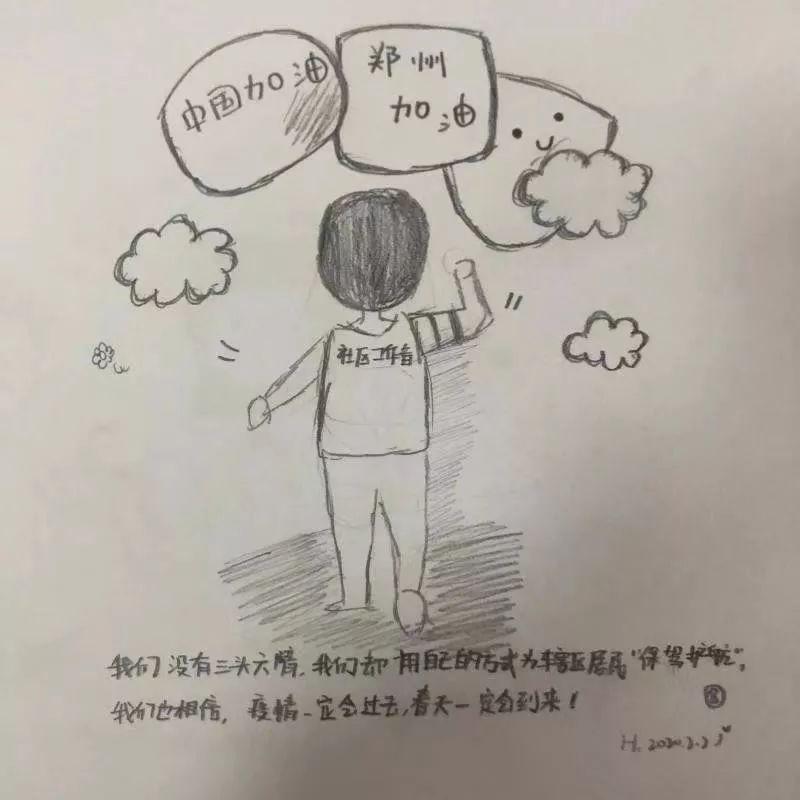 中国加油
郑州
加油
社区工作者
我们没有三头六臂,我们却用自己的方式为辖区居民"保驾护航",
我们也相信,疫情一定会过去,春天一定会到来!
H. 2020.2.2